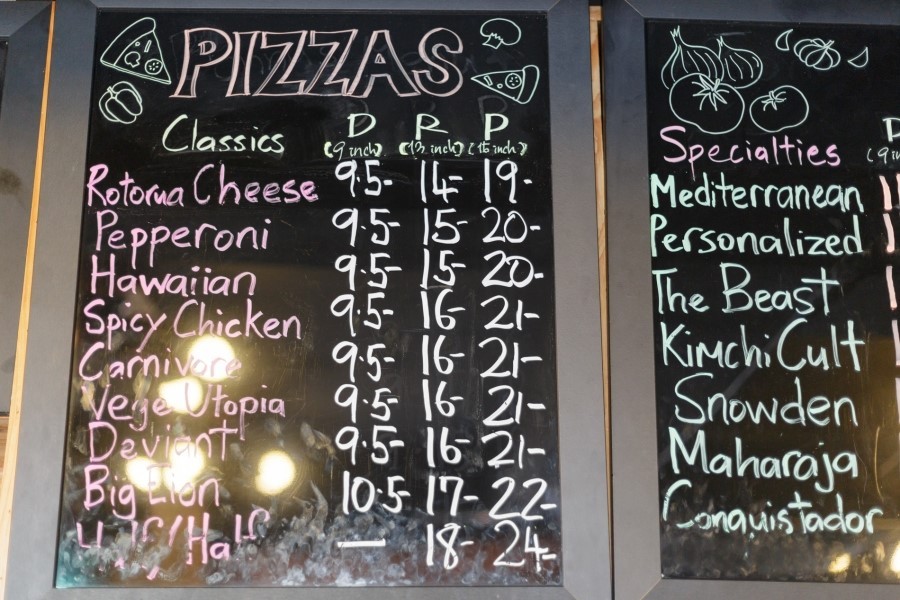 PIZZAS
Classics D R P
(9 inch) (13 inch) (15 inch)
Rotorua Cheese 9.5- 14- 19-
Pepperoni 9.5- 15- 20-
Hawaiian 9.5- 15- 20-
Spicy Chicken 9.5- 16- 21-
Carnivore 9.5- 16- 21-
Vege Utopia 9.5- 16- 21-
Deviant 9.5- 16- 21-
Big Elon 10.5 17- 22-
Half/Half — 18- 24-
Specialties
Mediterranean
Personalized
The Beast
Kimchi Cult
Snowden
Maharaja
Conquistador